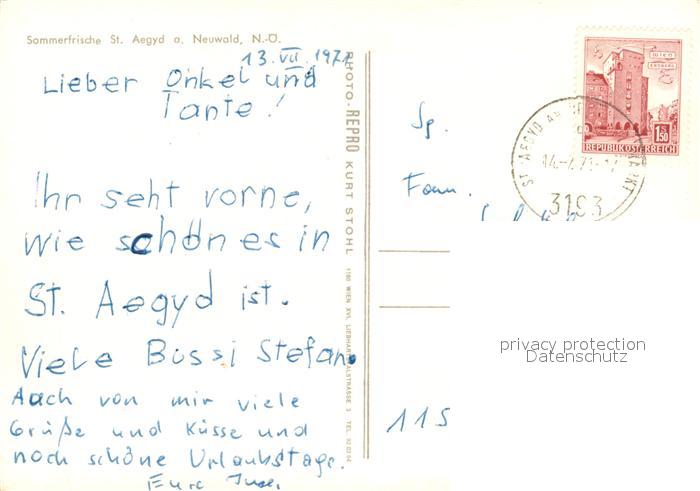 Sommerfrische St. Aegyd a. Neuwald, N.-Ö.
13. VII. 1971
Lieber Onkel und
Tante!
Ihr seht vorne,
wie schön es in
St. Aegyd ist.
Viele Bussi Stefan.
Auch von mir viele
Grüße und Küsse und
noch schöne Urlaubstage.
Eure
PHOTO-REPRO KURT STOHL
1180 WIEN XVI, LIEBHARTSTALSTRASSE 5 TEL.
WIEN
1.50
REPUBLIK ÖSTERREICH
ST. AEGYD AM
MARKT
3193
Sp.
Fam.
115
privacy protection
Datenschutz